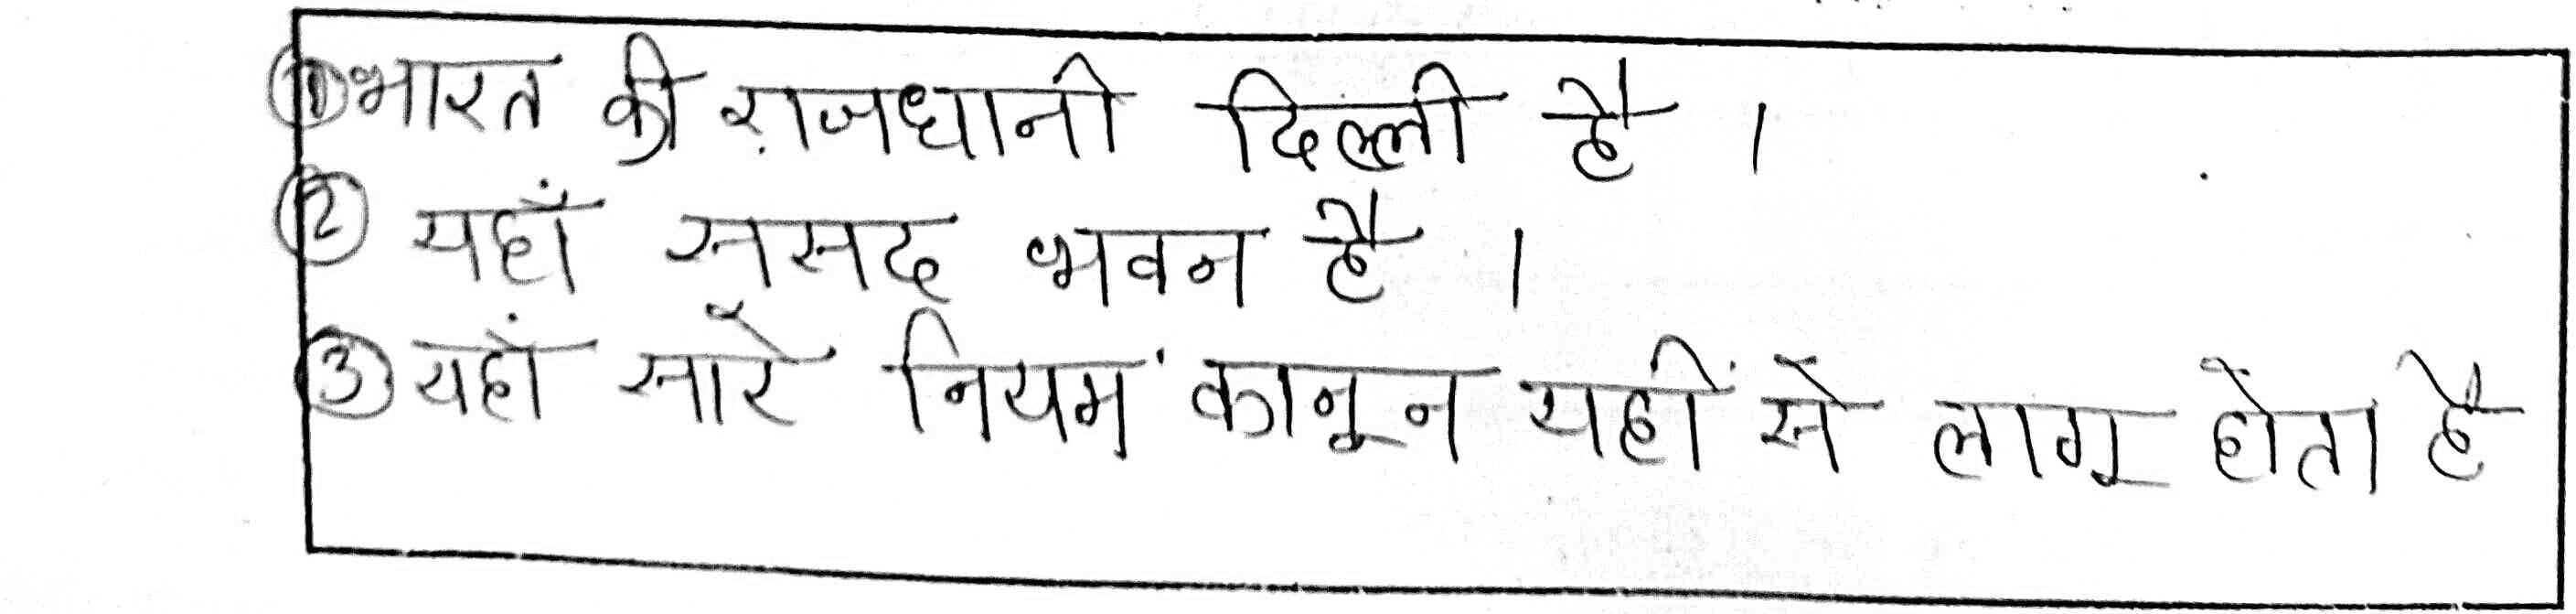 ① भारत की राजधानी दिल्ली है ।
② यहाँ ससद भवन है ।
③ यहाँ सारे नियम कानून यहीं से लागू होता है